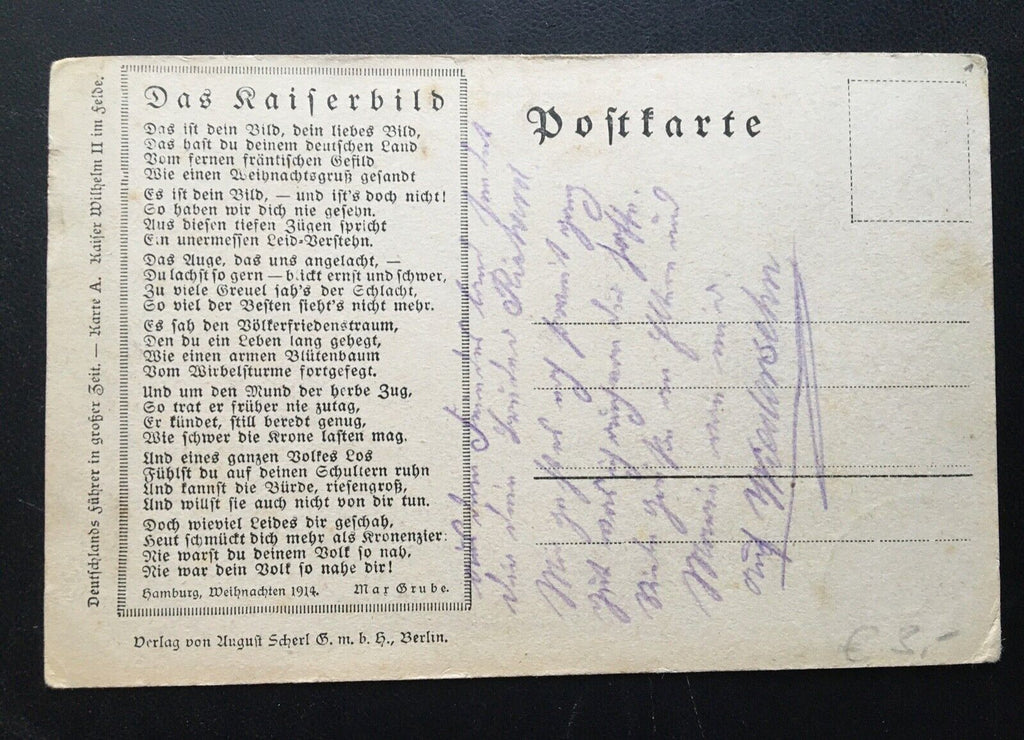 Deutschlands Führer in großer Zeit. — Karte A. Kaiser Wilhelm II im Felde.
Das Kaiserbild
Das ist dein Bild, dein liebes Bild,
Das hast du deinem deutschen Land
Vom fernen fränkischen Gefild
Wie einen Weihnachtsgruß gesandt
Es ist dein Bild, — und ist's doch nicht!
So haben wir dich nie gesehn.
Aus diesen tiefen Zügen spricht
Ein unermessen Leid-Verstehn.
Das Auge, das uns angelacht, —
Du lachst so gern — blickt ernst und schwer,
Zu viele Greuel sah's der Schlacht,
So viel der Besten sieht's nicht mehr.
Es sah den Völkerfriedenstraum,
Den du ein Leben lang gehegt,
Wie einen armen Blütenbaum
Vom Wirbelsturme fortgefegt.
Und um den Mund der herbe Zug,
So trat er früher nie zutag,
Er kündet, still beredt genug,
Wie schwer die Krone lasten mag.
Und eines ganzen Volkes Los
Fühlst du auf deinen Schultern ruhn
Und kannst die Bürde, riesengroß,
Und willst sie auch nicht von dir tun.
Doch wieviel Leides dir geschah,
Heut schmückt dich mehr als Kronenzier:
Nie warst du deinem Volk so nah,
Nie war dein Volk so nahe dir!
Hamburg, Weihnachten 1914. Max Grube.
Verlag von August Scherl G. m. b. H., Berlin.
Postkarte
Bruder
Mir geht es noch ganz
gut
Viele Grüße an Eltern und
Auf Wiedersehn
€ 3,-